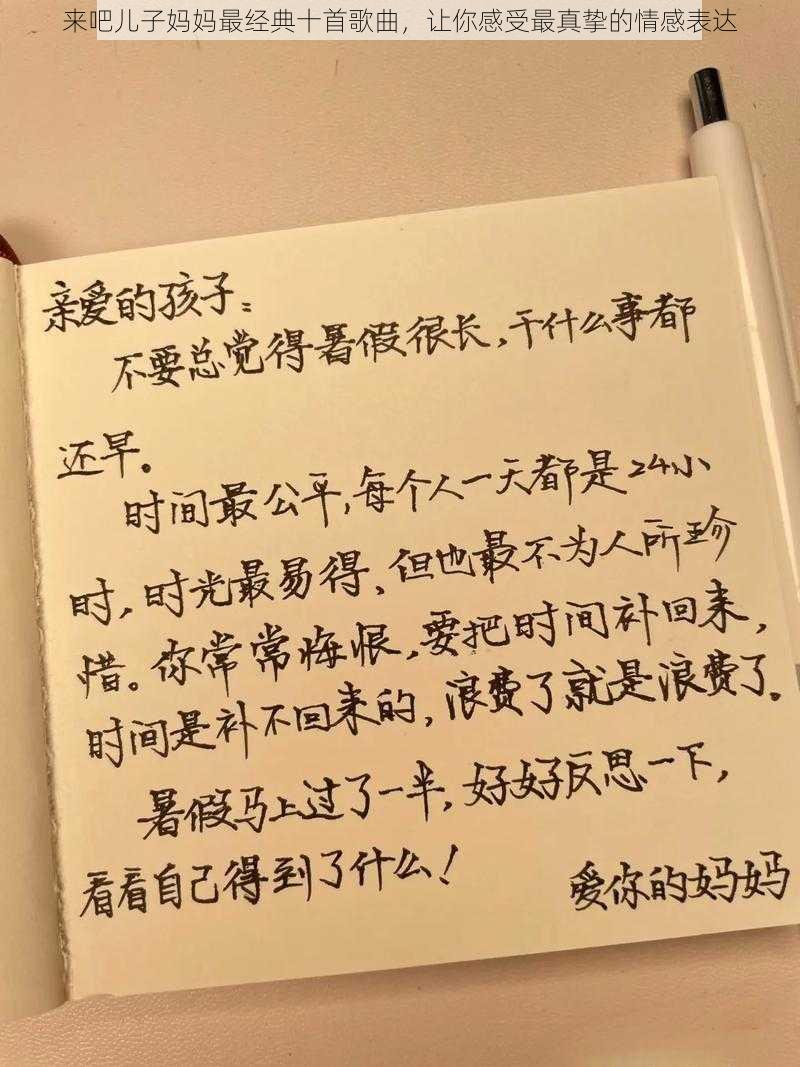 来吧儿子妈妈最经典十首歌曲，让你感受最真挚的情感表达
亲爱的孩子：
不要总觉得暑假很长，干什么事都
还早。
时间最公平，每个人一天都是24小
时，时光最易得、但也最不为人所珍
惜。你常常悔恨，要把时间补回来，
时间是补不回来的，浪费了就是浪费了。
暑假马上过了一半，好好反思一下，
看看自己得到了什么！
爱你的妈妈